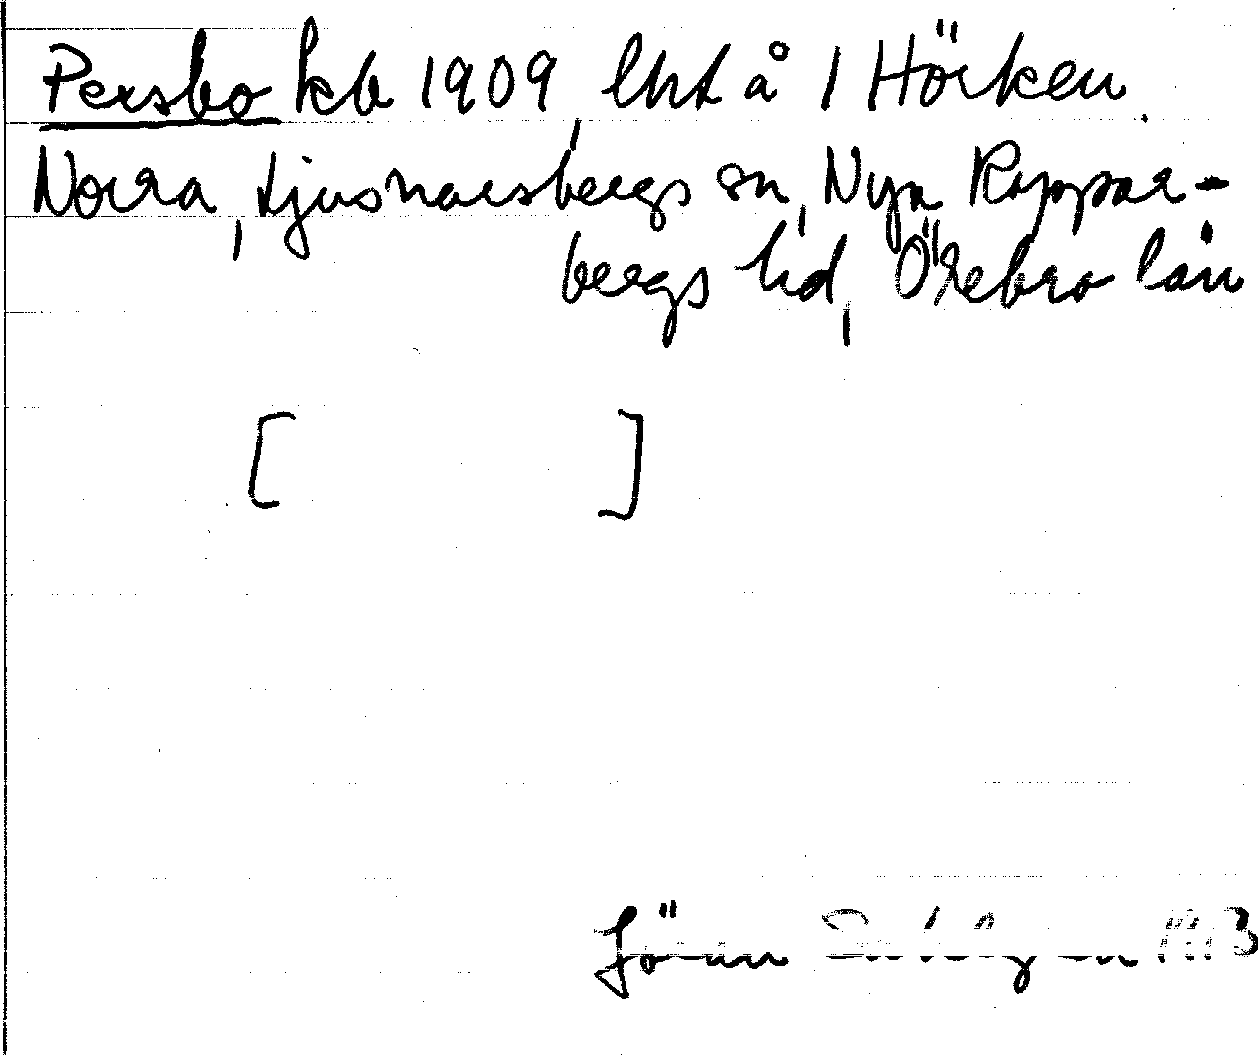 Persbo kb 1909, lht å 1 Hörken
Norra, Ljusnarsbergs sn, Nya Koppar-
bergs hd, Örebro län
[ ]
Jöran